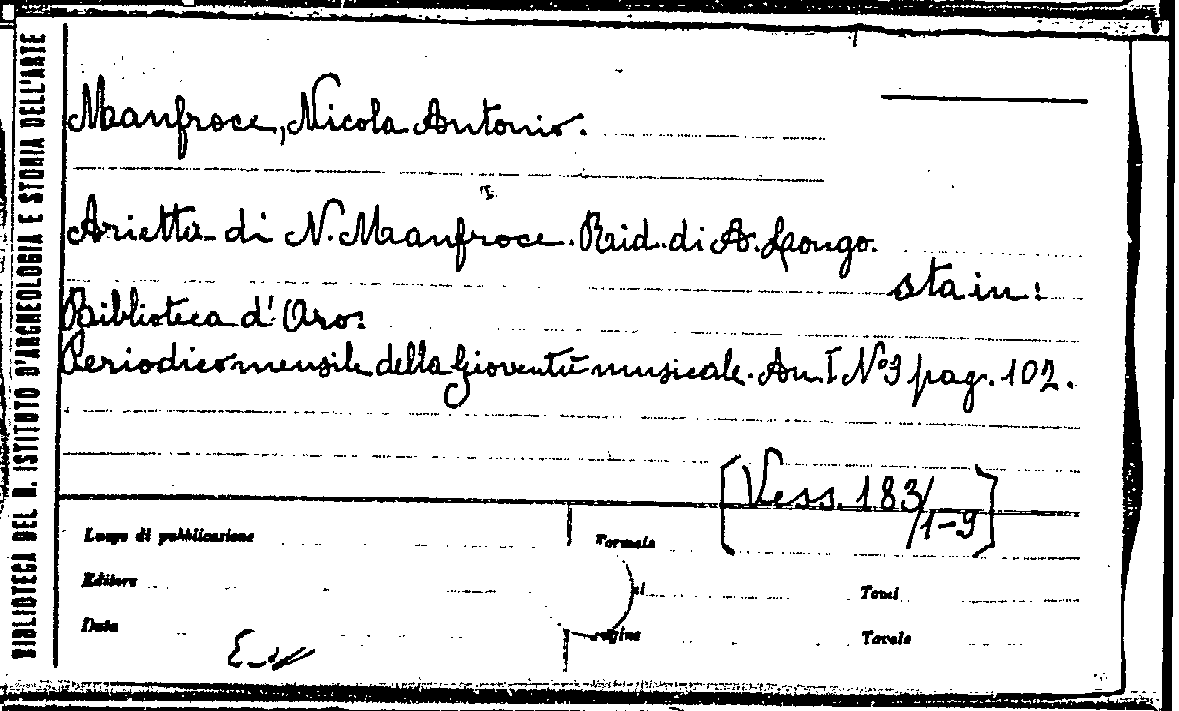 BIBLIOTECA DEL R. ISTITUTO D'ARCHEOLOGIA E STORIA DELL'ARTE
Manfroce, Nicola Antonio.
Arietta di N. Manfroce. Rid. di A. Longo.
sta in:
Biblioteca d'Oro:
Periodico mensile della Gioventù musicale. An. I Nº 9 pag. 102.
[Vess. 183/
/1-9]
Luogo di pubblicazione
Formato
Editore
Tomi
Data
Pagine
Tavole